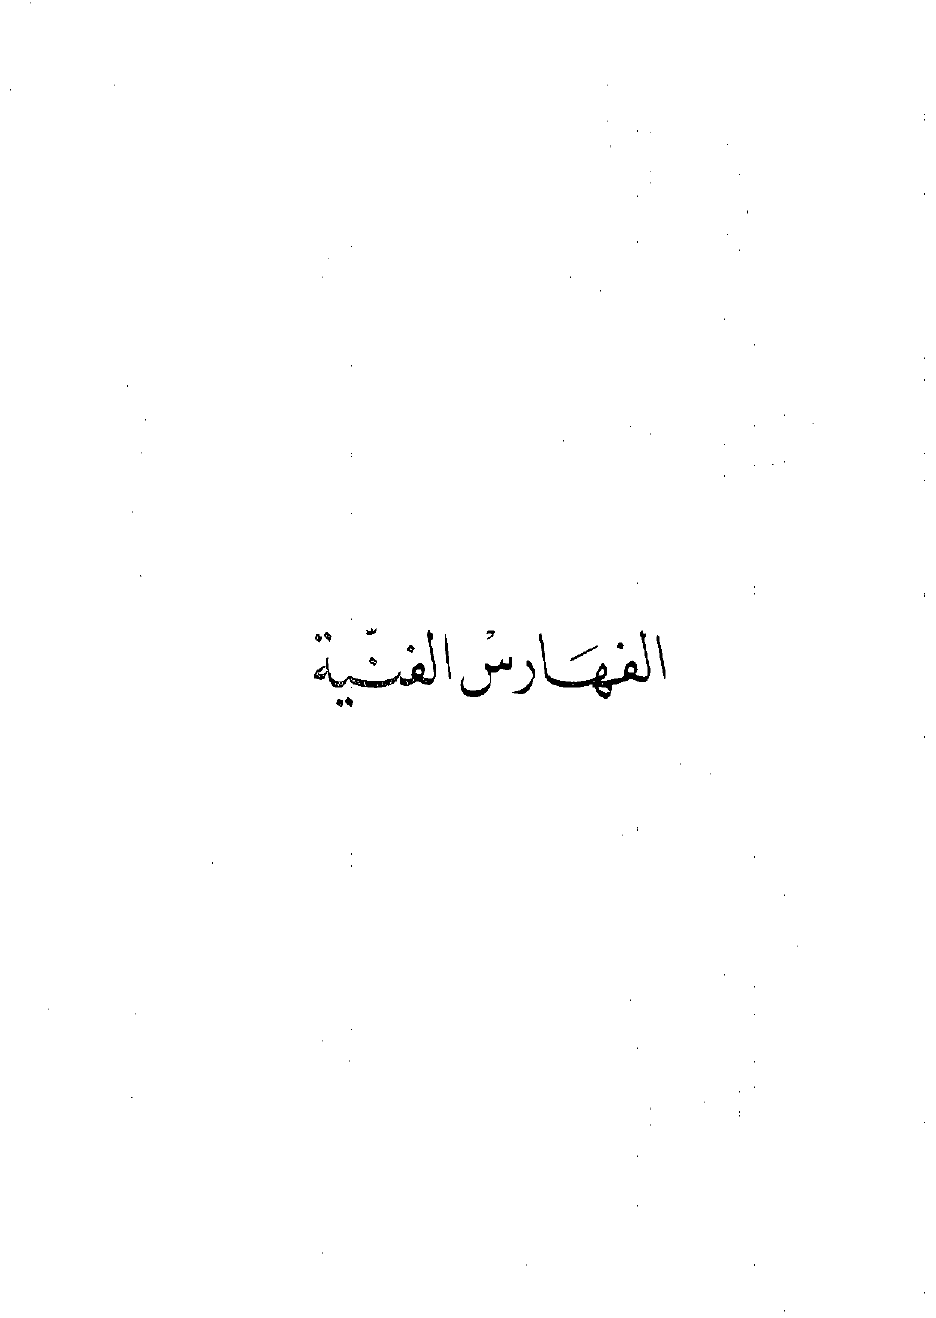 الفهَارسْ الفنّية